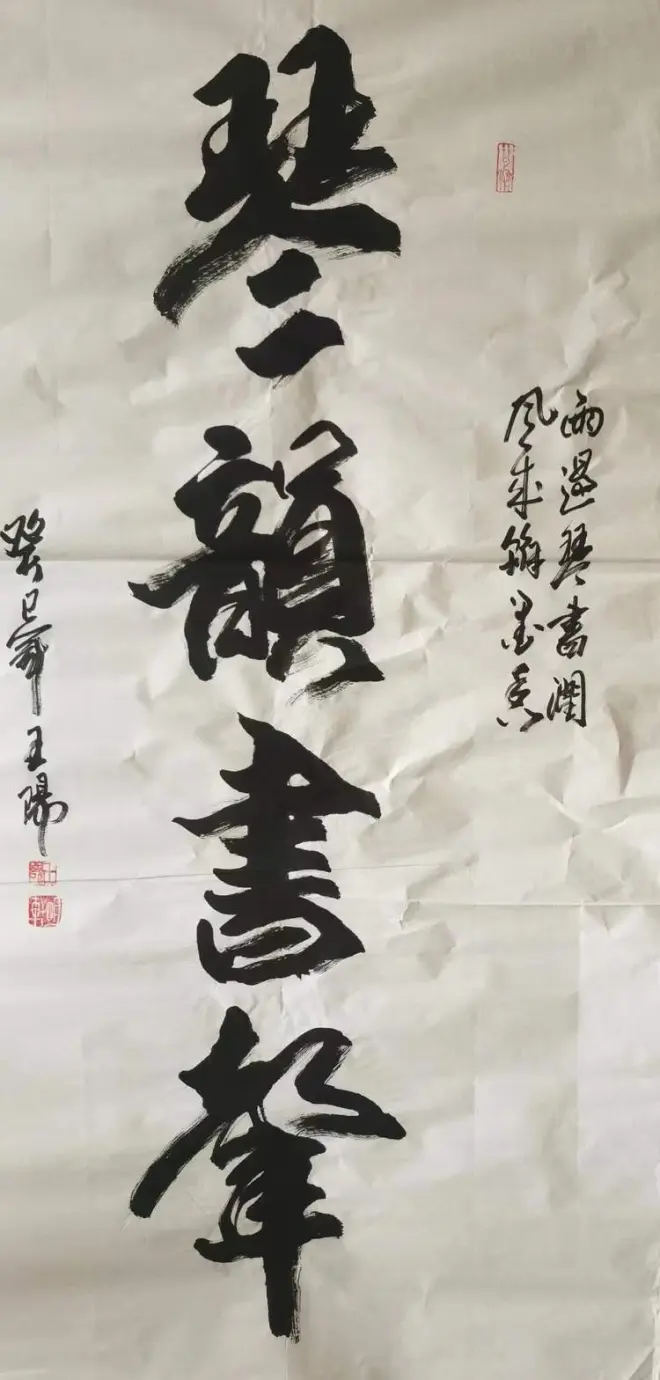 雨過琴書潤
風來翰墨香
琴韻書聲
癸巳年王陽